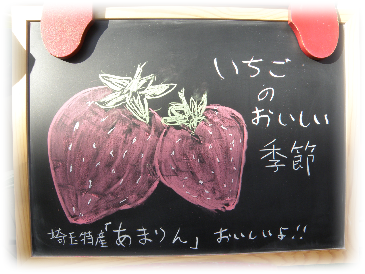 いちご
の
おいしい
季節
埼玉特産「あまりん」 おいしいよ!!